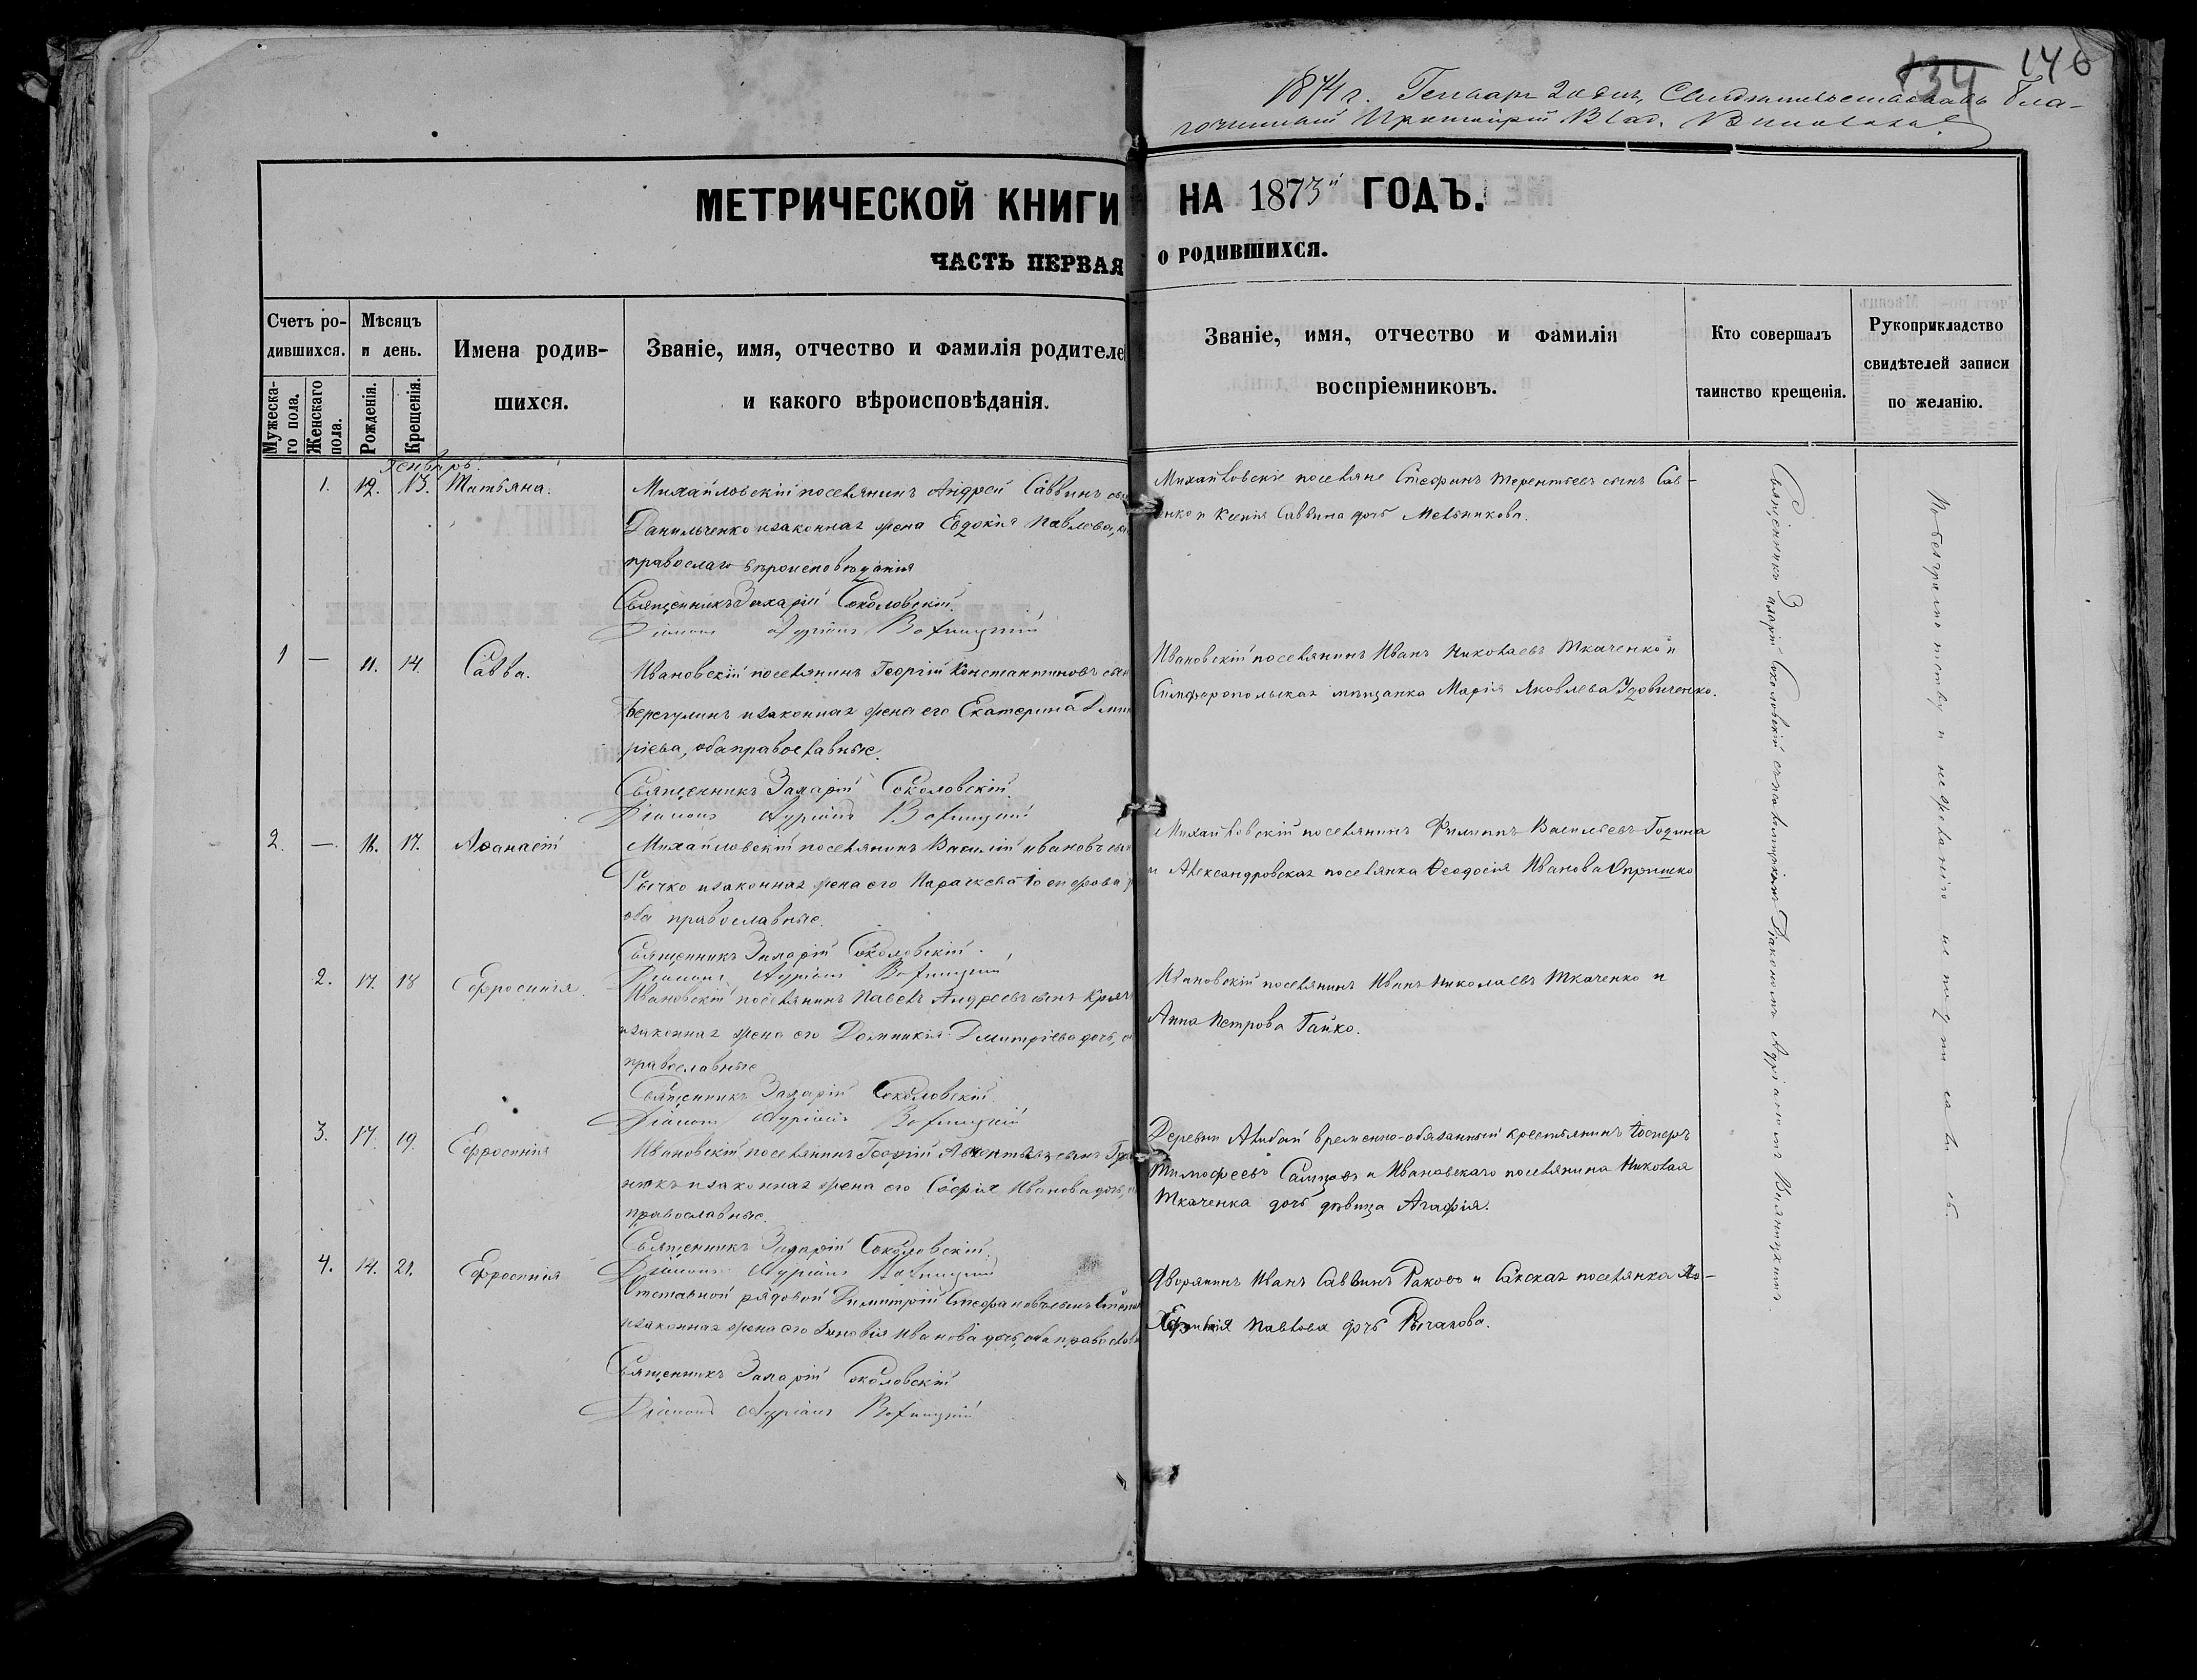 134 146
1874 г. Генваря 20 дня, Свидѣтельствовалъ Бла-
гочинный Протоіерей Влад.
МЕТРИЧЕСКОЙ КНИГИ НА 1873й ГОДЪ.
ЧАСТЬ ПЕРВАЯ О РОДИВШИХСЯ.
Счетъ ро-
дившихся.
Мужеска-
го пола.
Женскаго
пола.
Мѣсяцъ
и день.
Рожденія.
Крещенія.
Имена родив-
шихся.
Званіе, имя, отчество и фамилія родителе
и какого вѣроисповѣданія.
Званіе, имя, отчество и фамилія
воспріемниковъ.
Кто совершалъ
таинство крещенія.
Рукоприкладство
свидѣтелей записи
по желанію.
Генварь.
1. 12. 13. Татьяна.
Михайловскій поселянинъ Андрей Саввинъ сы
Данильченко и законная жена Евдокія Павлова,
православ вѣроисповѣданія
Священникъ Захарій Соколовскій.
Діаконъ Адріанъ
Михайловскіе поселяне Стефанъ Терентьевъ сынъ Сав-
енко и Ксенія Саввина дочь Мельникова.
1 — 11. 14. Савва.
Ивановскій поселянинъ Георгій Константиновъ сын
Берегулинъ и законная жена его Екатерина Дмит
ріева, оба православные.
Священникъ Захарій Соколовскій
Діаконъ Адріанъ
Ивановскій поселянинъ Иванъ Николаевъ Ткаченко и
Симферопольская мѣщанка Марія Яковлева Удовиченко.
2. — 16. 17. Аѳанасій
Михайловскій поселянинъ Василій Ивановъ сын
Бычко и законная жена его Параскева Іосифова
оба православные.
Священникъ Захарій Соколовскій.
Діаконъ Адріанъ
Михайловскій поселянинъ Филиппъ Васильевъ Година
и Александровская поселянка Ѳеодосія Иванова Опришко
2. 17. 18 Ефросинія.
Ивановскій поселянинъ Павелъ Андреевъ сынъ
и законная жена его Домникія Дмитріева дочь, о
православные
Священникъ Захарій Соколовскій.
Діаконъ Адріанъ
Ивановскій поселянинъ Иванъ Николаевъ Ткаченко и
Анна Петрова Гайко.
3. 17. 19. Ефросинія
Ивановскій поселянинъ Георгій сынъ
нюкъ и законная жена его Софія Иванова дочь,
православные.
Священникъ Захарій Соколовскій.
Діаконъ Адріанъ
Деревни временно-обязанный крестьянинъ Іосифъ
Тимофеевъ и Ивановскаго поселянина Николая
Ткаченка дочь дѣвица Агафія.
4. 14. 21. Ефросинія
Отставной рядовой Димитрій Стефановъ сынъ
и законная жена его Зиновія Иванова дочь, оба правосла
Священникъ Захарій Соколовскій
Діаконъ Адріанъ
Дворянинъ Иванъ Саввинъ Раковъ и Сакская поселянка
Павлова дочь Рычакова.
Священникъ Захарій Соколовскій съ Діакономъ Адріаномъ
По безграмотству и не желанію не подписались.